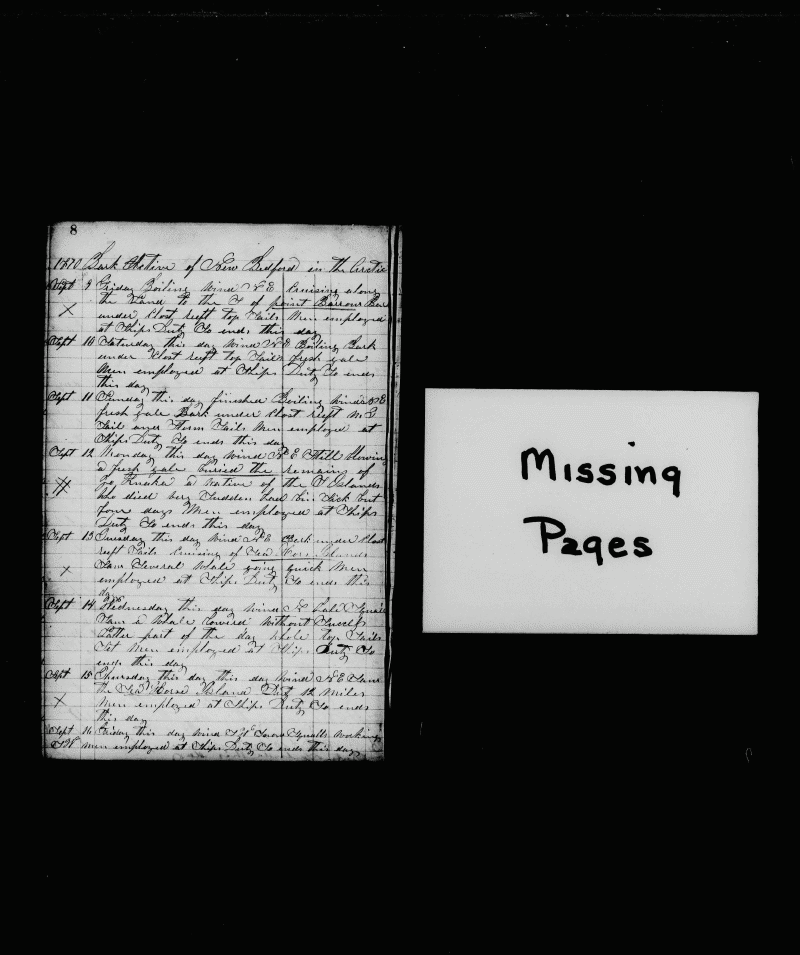 8
1870 Bark Active of New Bedford in the Arctic
Sept 9 Friday Boiling wind N E Cruising along
the Land to the of point Barrows Bark
under Clost reeft top Sails Men employed
at Ships Duty So ends this day
Sept 10 Saturday this day wind N E Boiling Bark
under Clost reeft top Sails fresh gale
Men employed at Ships Duty So ends
this day
Sept 11 Sunday this day finished Boiling wind N E
fresh gale Bark under Clost reeft M S
Sail and Storm Sails Men employed at
Ships Duty So ends this day
Sept 12 Monday this day wind N E Still blowing
a fresh gale buried the remains of
Jo Knaka a native of the Islands
who died very Sudden had bin Sick but
four days Men employed at Ships
Duty So ends this day
Sept 13 Tuesday this day wind N E Bark under Clost
reeft Sails Cruising of Sea Hors Islands
Saw Several whale going quick Men
employed at Ships Duty So ends this
day
Sept 14 Wednesday this day wind N
Saw a whale lowered without Success
Latter part of the day whole top Sails
Set Men employed at Ships Duty So
ends this day
Sept 15 Thursday this day this day wind N E Saw
the Sea Horse Island Dist 12 Miles
Men employed at Ships Duty So ends
this day
Sept 16 Friday this day wind Snow Squalls working
men employed at Ships Duty So ends this day
Missing
Pages